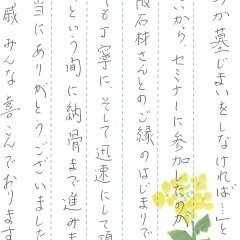 か墓じまいをしなければ…」と
いから、セミナーに参加したのが
阪石材さんとのご縁のはじまりで
も丁寧に、そして迅速にして頂
という間に納骨まで進みま
当にありがとうございました
戚みんな喜んでおります